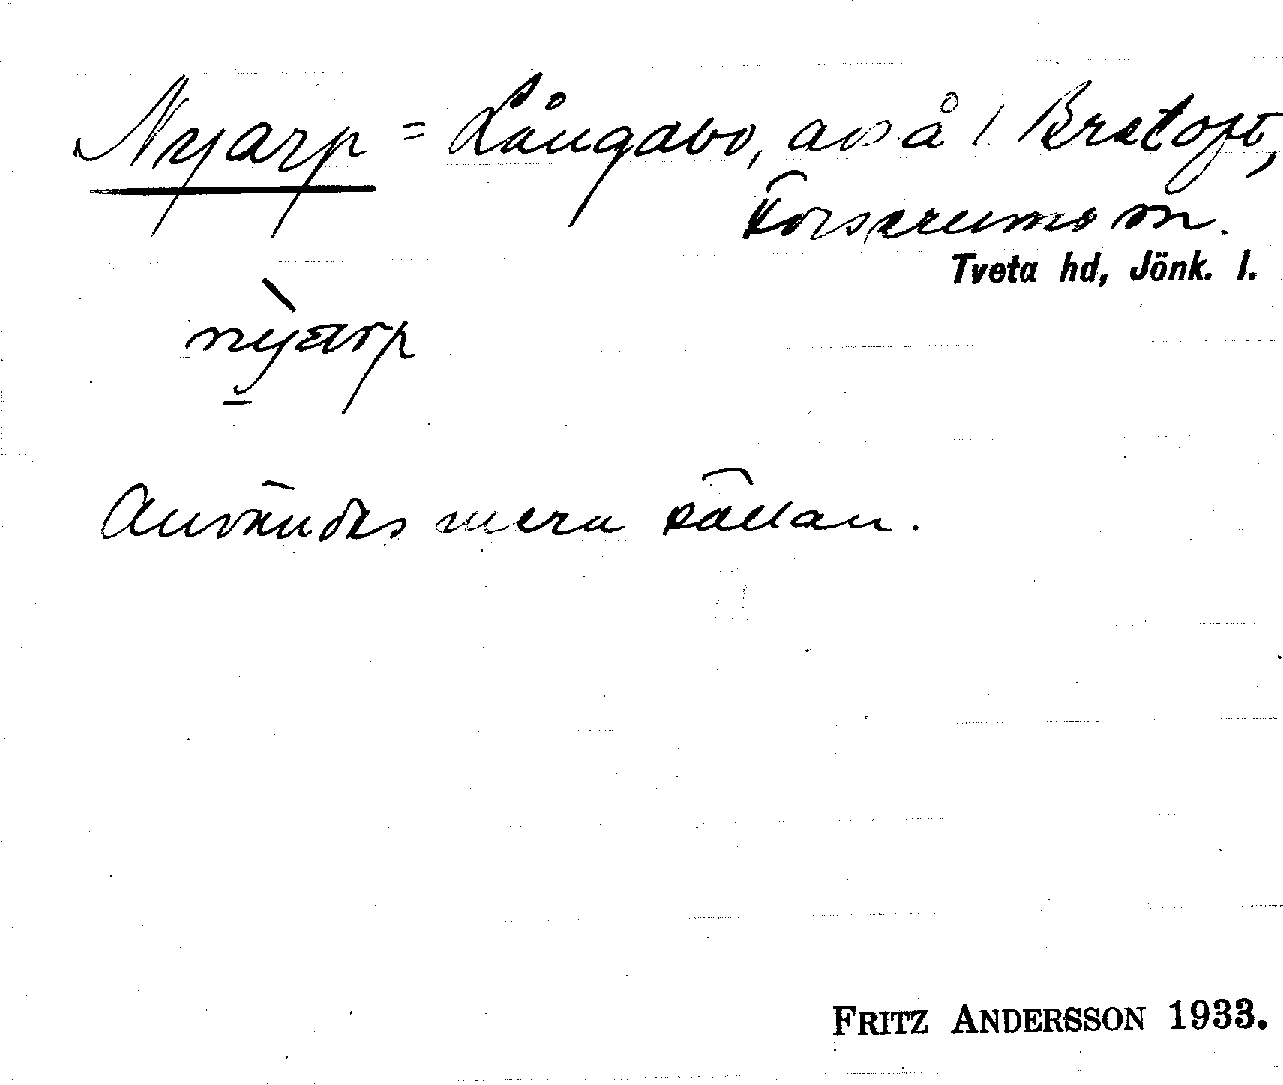 Nyarp = Långabo, avs å / Bretoft,
Forserums sn.
Tveta hd, Jönk. l.
nỳarp
Användes mera sällan.
FRITZ ANDERSSON 1933.